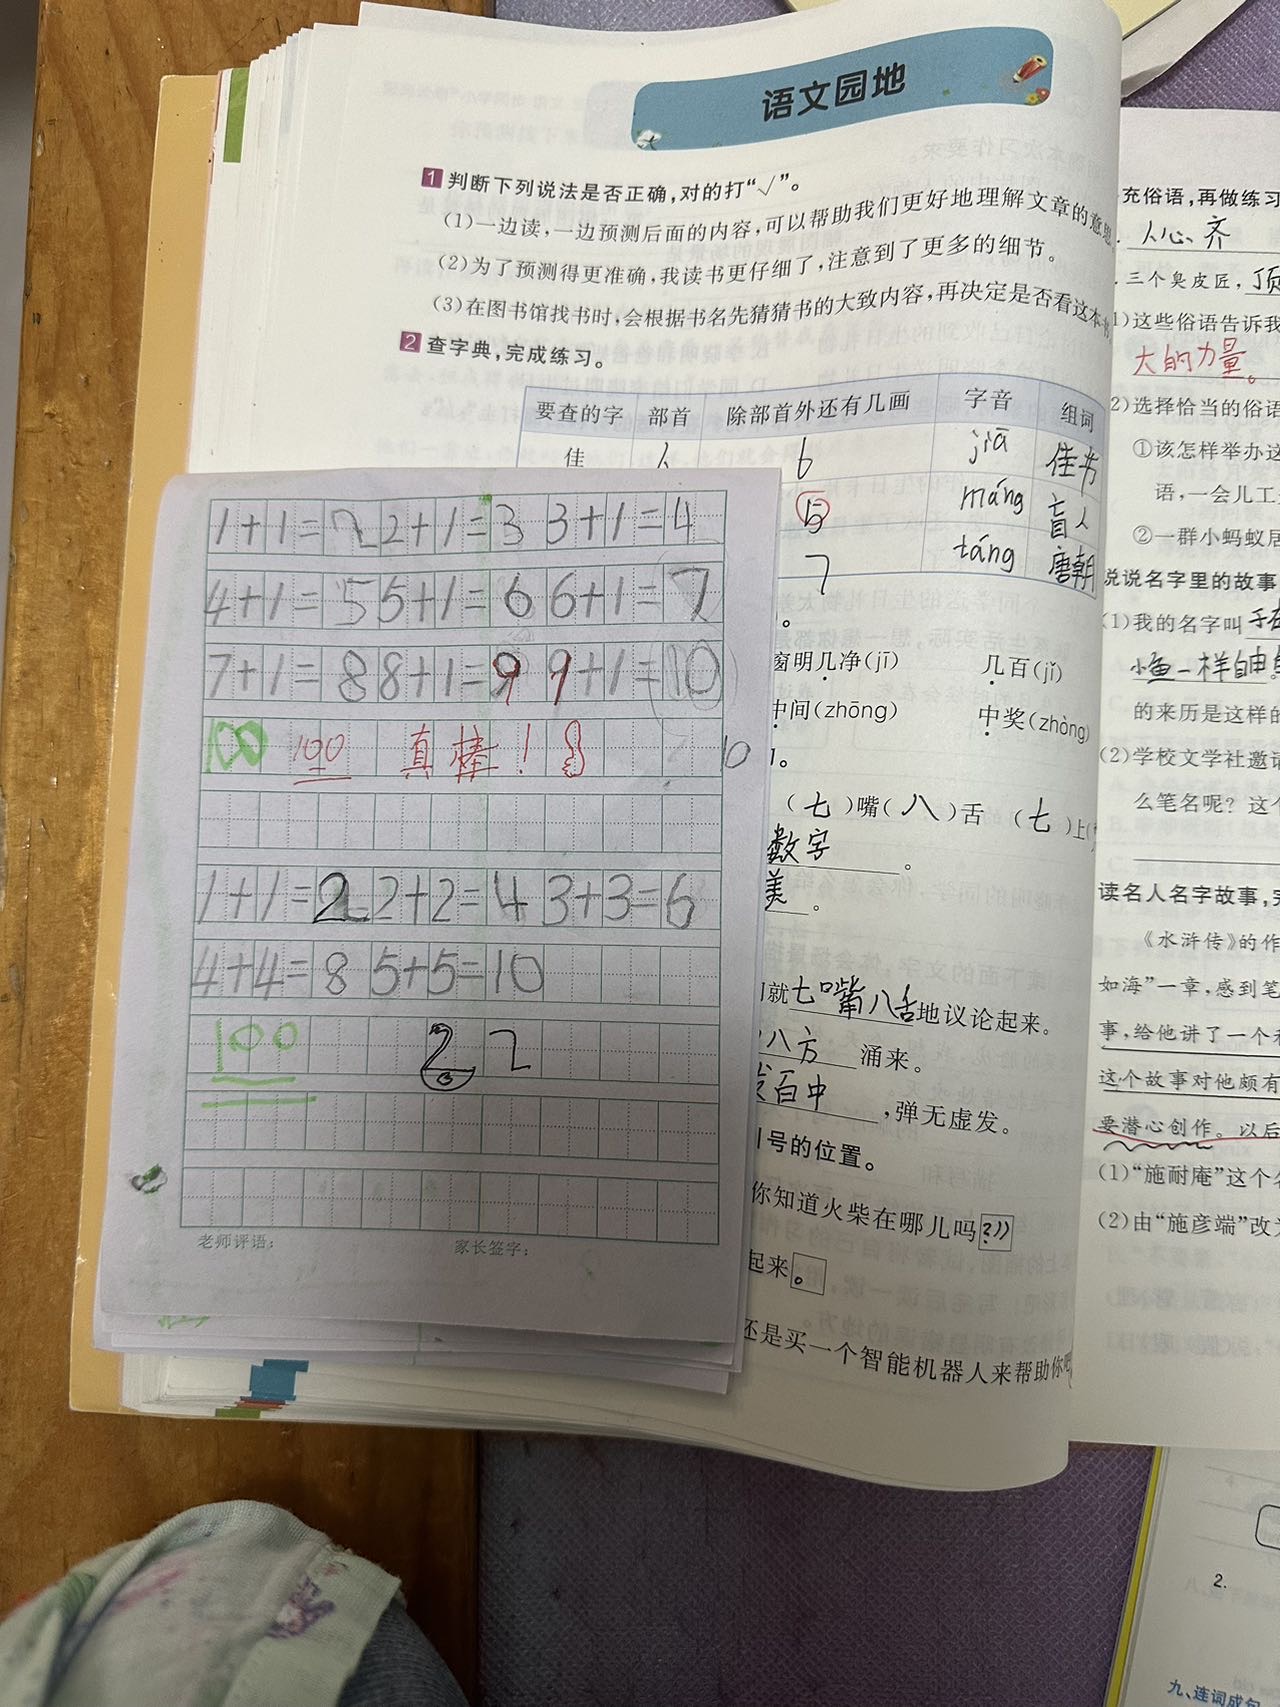 语文园地
1 判断下列说法是否正确,对的打“√”。
(1)一边读,一边预测后面的内容,可以帮助我们更好地理解文章的意思
(2)为了预测得更准确,我读书更仔细了,注意到了更多的细节。
(3)在图书馆找书时,会根据书名先猜猜书的大致内容,再决定是否看这本书
2 查字典,完成练习。
要查的字 部首 除部首外还有几画 字音 组词
佳 亻 6 jiā 佳节
5 máng 盲人
7 táng 唐朝
。
窗明几净(jī) 几百(jǐ)
中间(zhōng) 中奖(zhòng)
。
(七)嘴(八)舌 (七)上(
数字。
美。
就七嘴八舌地议论起来。
八方 涌来。
发百中,弹无虚发。
引号的位置。
你知道火柴在哪儿吗?”
起来。
还是买一个智能机器人来帮助你吧
1+1=2 2+1=3 3+1=4
4+1=5 5+1=6 6+1=7
7+1=8 8+1=9 9+1=10
100 100 真棒! 10
1+1=2 2+2=4 3+3=6
4+4=8 5+5=10
100 2 2
老师评语: 家长签字:
充俗语,再做练习
人心齐
三个臭皮匠,顶
1)这些俗语告诉我
大的力量。
2)选择恰当的俗语
①该怎样举办这
语,一会儿工
②一群小蚂蚁居
说说名字里的故事
(1)我的名字叫
一样自由
的来历是这样的
(2)学校文学社邀请
么笔名呢?这个
读名人名字故事,完
《水浒传》的作
如海”一章,感到笔
事,给他讲了一个
这个故事对他颇有
要潜心创作。以后
(1)“施耐庵”这个名
(2)由“施彦端”改为
2.
九、连词成句